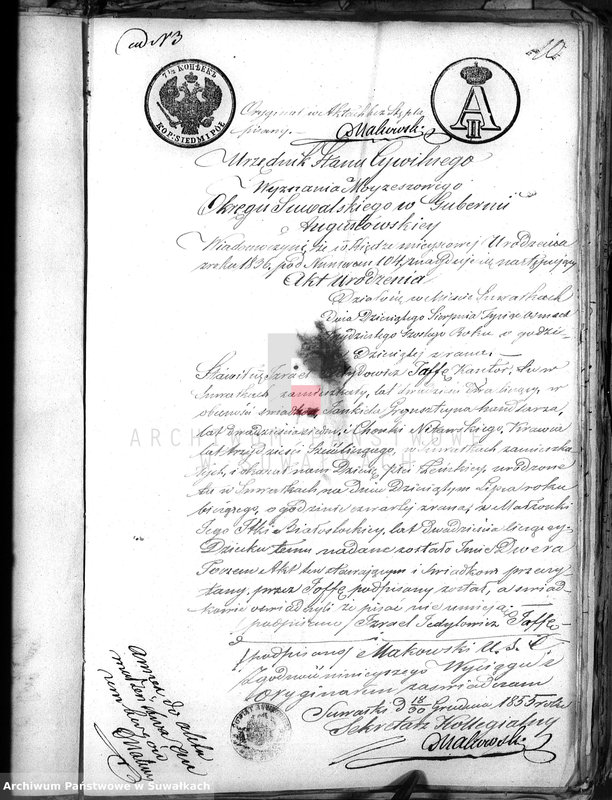 ad N 3
10.
7½ КОПѢЕКЪ
KOP: SIEDM I PÓŁ
A II
Oryginał w Aktach bez Stępla
pisany.
Makowski
Urzędnik Stanu Cywilnego
Wyznania Moyżeszowego
Okręgu Suwalskiego w Gubernii
Augustowskiey
Wiadomo czyni, że w księdze mieyscowej Urodzenia
z roku 1836, pod Numerem 104, znayduje się następujący
Akt Urodzenia
Działo się w Mieście Suwałkach
Dnia Dziesiątego Sierpnia Tysiąc osmset
trzydziestego szostego Roku o godzi-
Dziesiątej z rana.
Stawił się Izrael Jaffe Kantor, tu w
Suwałkach zamieszkały, lat w
obecności świadków, Jankiela handlarza,
lat dwadzieścia siedm, i Chonki Krawca
lat trzydzieści liczącego, w Suwałkach zamieszka-
łych, i okazał nam Dziecię płci Żeńskiey, urodzone
tu w Suwałkach, na dniu Dziesiątym Lipca roku
bieżącego, o godzinie czwartey z rana, z Małżonki
Jego Itki Białostockiey, lat dwadzieścia liczącey.
Dziecku temu nadane zostało Imie Dwera
Poczem Akt ten stawającym i świadkom przeczy-
tany, przez Joffę podpisany został, a świad-
kowie oświadczyli że pisać nie umieją
podpisano / Izrael Joffe
/podpisano/ Makowski U. S. C.
Zgodność ninieyszego Wyciągu z
Oryginałem zaświadczam
Suwałki d 18/30 Grudnia 1855 roku
Sekretarz Kollegialny
Makowski
Annex do aktu
małżeństwa
Makow
ARCHIWUM PAŃSTWOWE
W SUWAŁKACH
Archiwum Państwowe w Suwałkach